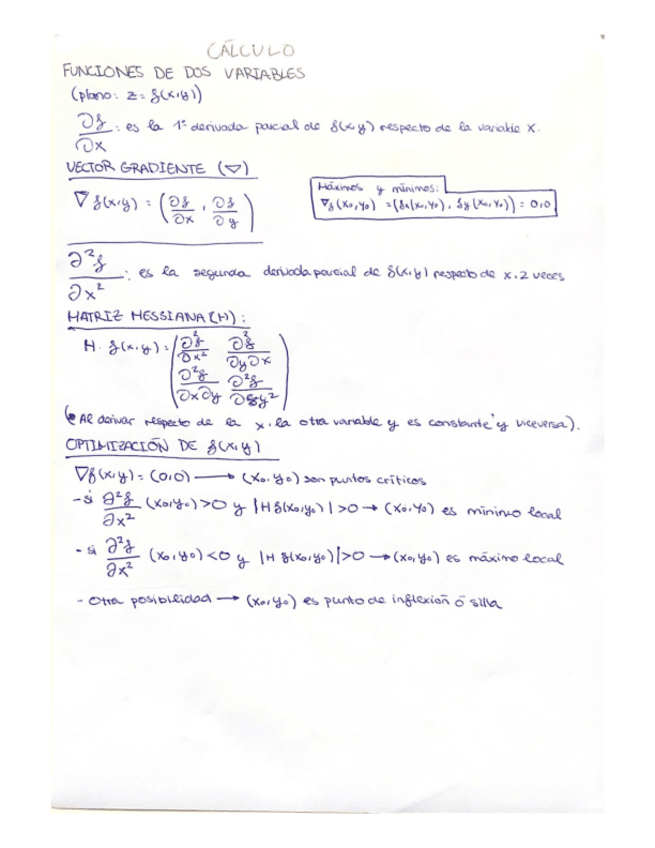 CÁLCULO
FUNCIONES DE DOS VARIABLES
(plano: z = f(x,y))
∂f/∂x : es la 1ª derivada parcial de f(x,y) respecto de la variable x.
VECTOR GRADIENTE (∇)
∇f(x,y) = (∂f/∂x , ∂f/∂y)
Máximos y mínimos:
∇f(x₀,y₀) = (fx(x₀,y₀), fy(x₀,y₀)) = 0,0
∂²f/∂x² : es la segunda derivada parcial de f(x,y) respecto de x. 2 veces
MATRIZ HESSIANA (H):
H. f(x,y) = (∂²f/∂x² ∂²f/∂y∂x
∂²f/∂x∂y ∂²f/∂y²)
(Al derivar respecto de la x. la otra variable y es constante y viceversa).
OPTIMIZACIÓN DE f(x,y)
∇f(x,y) = (0,0) → (x₀,y₀) son puntos críticos
- si ∂²f/∂x² (x₀,y₀) > 0 y |H f(x₀,y₀)| > 0 → (x₀,y₀) es mínimo local
- si ∂²f/∂x² (x₀,y₀) < 0 y |H f(x₀,y₀)| > 0 → (x₀,y₀) es máximo local
- Otra posibilidad → (x₀,y₀) es punto de inflexión ó silla